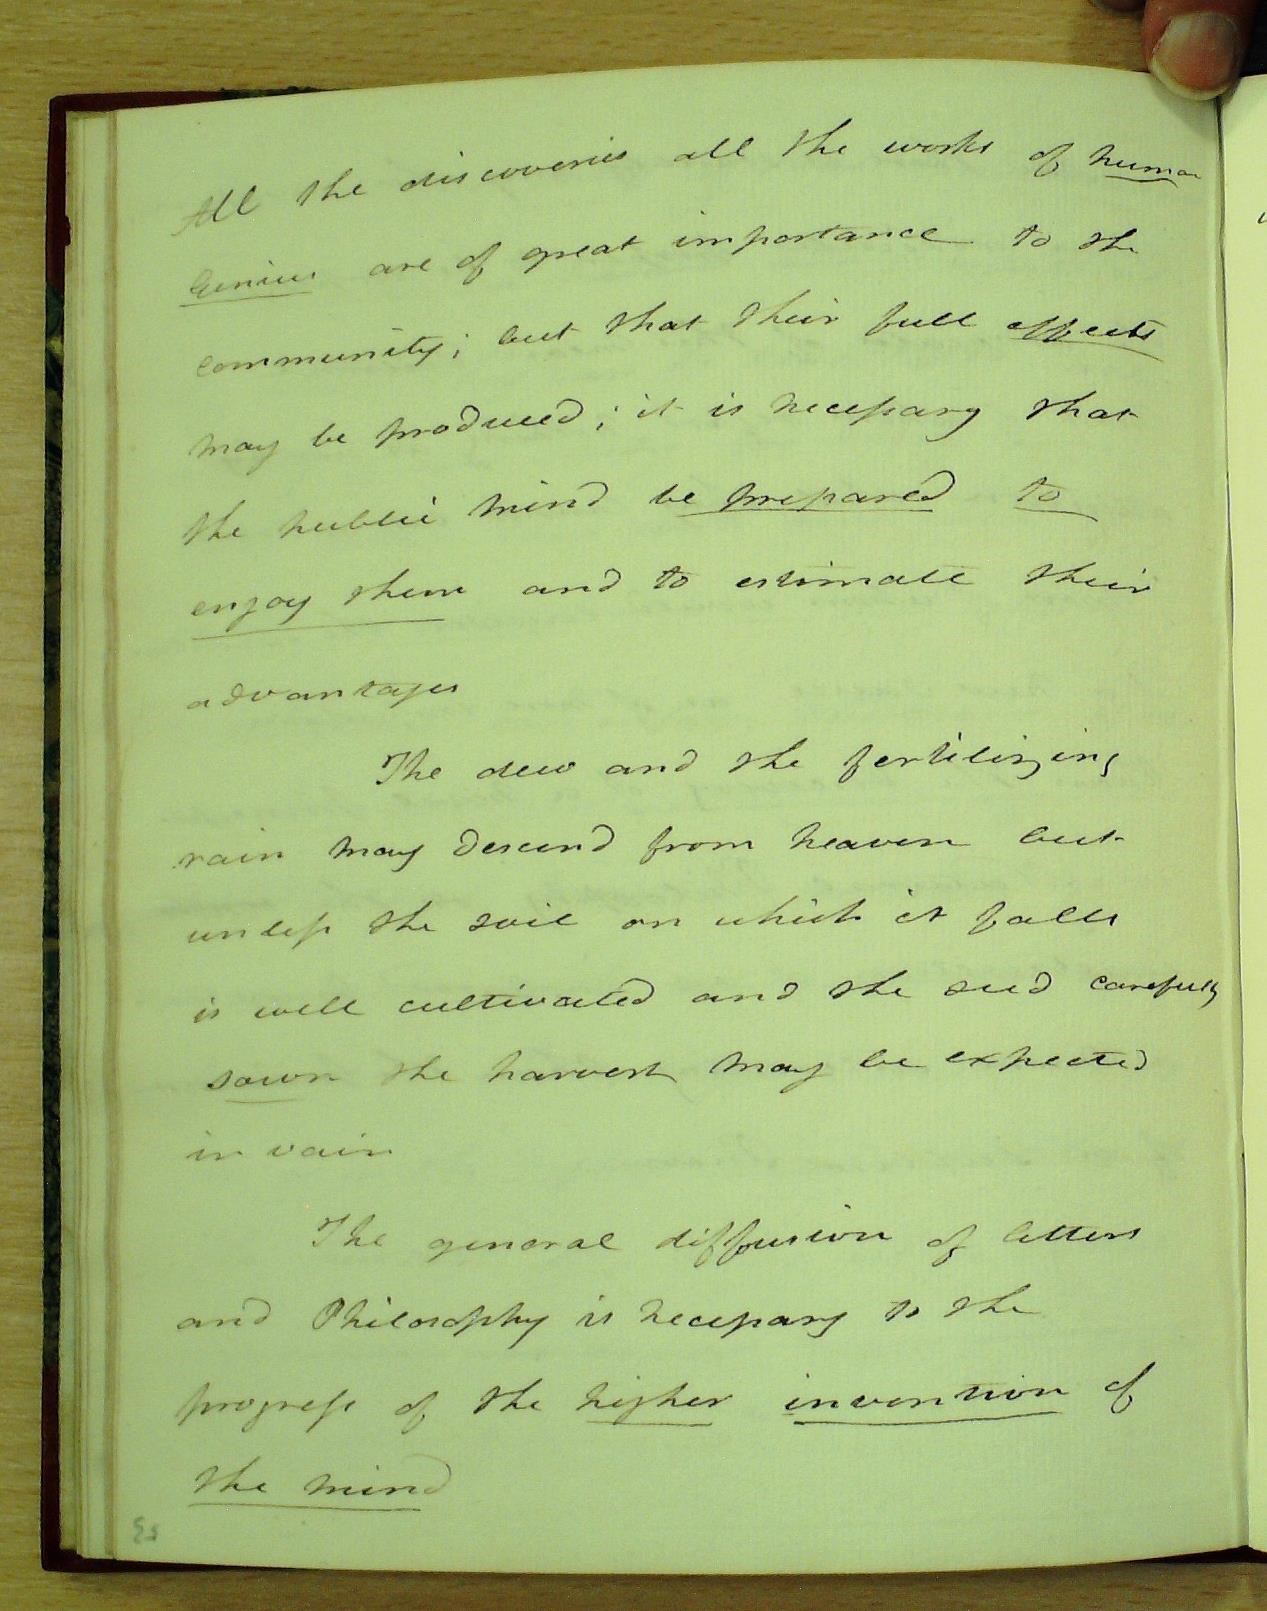 All the discoveries all the works of human
Genius are of great importance to the
community; but that their full effects
may be produced; it is necessary that
the public mind be prepared to
enjoy them and to estimate their
advantages
The dew and the fertilizing
rain may descend from heaven but
unless the soil on which it falls
is well cultivated and the seed carefully
sown the harvest may be expected
in vain
The general diffusion of letters
and Philosophy is necessary to the
progress of the higher invention of
the mind